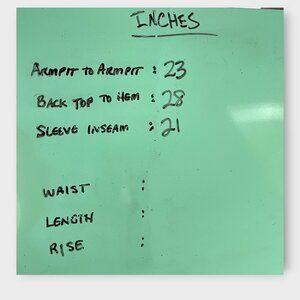 INCHES
ARMPIT TO ARMPIT : 23
BACK TOP TO HEM : 28
SLEEVE INSEAM : 21
WAIST :
LENGTH :
RISE :